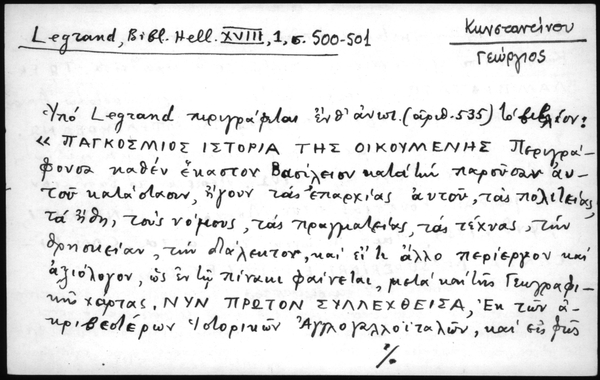 Legrand, Bibl. Hell. XVIII, 1, σ. 500-501
Κωνσταντίνου
Γεώργιος
Ὑπό Legrand περιγράφεται ἐνθ' ἀνωτ. (ἀριθ. 535) τό βιβλίον:
« ΠΑΓΚΟΣΜΙΟΣ ΙΣΤΟΡΙΑ ΤΗΣ ΟΙΚΟΥΜΕΝΗΣ Περιγρά-
φουσα καθέν ἕκαστον Βασίλειον κατά τήν παροῦσαν αὐ-
τοῦ κατάστασιν, ἤγουν τάς ἐπαρχίας αὐτοῦ, τάς πολιτείας,
τά ἤθη, τούς νόμους, τάς πραγματείας, τάς τέχνας, τήν
θρησκείαν, τήν διάλεκτον, καί εἴ τι ἄλλο περίεργον καί
ἀξιόλογον, ὡς ἐν τῷ πίνακι φαίνεται, μετά καί τῆς Γεωγραφι-
κῆς χάρτας, ΝΥΝ ΠΡΩΤΟΝ ΣΥΛΛΕΧΘΕΙΣΑ, Ἐκ τῶν ἀ-
κριβεστέρων Ἱστορικῶν Ἀγγλογαλλοϊταλῶν, καί εἰς φῶς
%